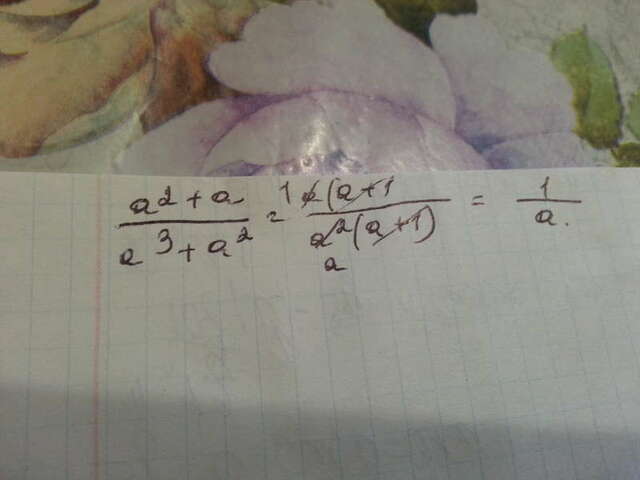 a² + a / a³ + a² = 1 a (a + 1 / a² (a + 1) a = 1 / a.